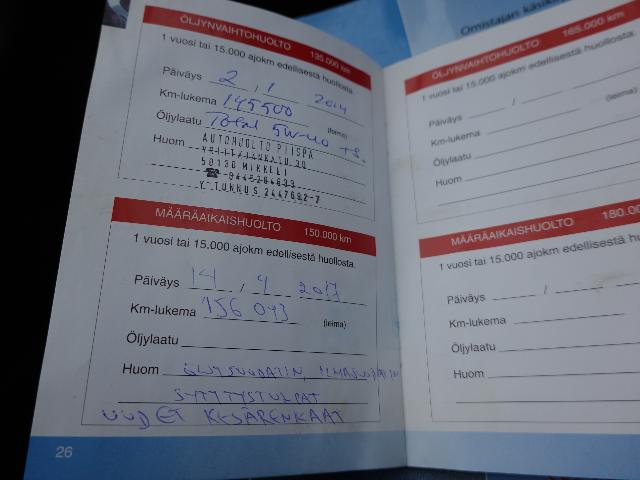 ÖLJYNVAIHTOHUOLTO 135.000 km
1 vuosi tai 15.000 ajokm edellisestä huollosta.
Päiväys 2 / 1 2014
Km-lukema 145500
(leima)
Öljylaatu Total 5W-40
Huom AUTOHUOLTO PIISPA
50130 MIKKELI
Y-TUNNUS 2447692-7
MÄÄRÄAIKAISHUOLTO 150.000 km
1 vuosi tai 15.000 ajokm edellisestä huollosta.
Päiväys 14 / 9 2017
Km-lukema 156 043
(leima)
Öljylaatu
Huom ÖLJYSUODATIN, ILMASUODATIN
SYTYTYSTULPAT
UUDET KESÄRENKAAT
26
Omistajan
ÖLJYNVAIHTOHUOLTO 165.000 km
1 vuosi tai 15.000 ajokm edellisestä huollosta.
Päiväys /
Km-lukema (leima)
Öljylaatu
Huom
MÄÄRÄAIKAISHUOLTO 180.00
1 vuosi tai 15.000 ajokm edellisestä huollos
Päiväys /
Km-lukema
Öljylaatu
Huom